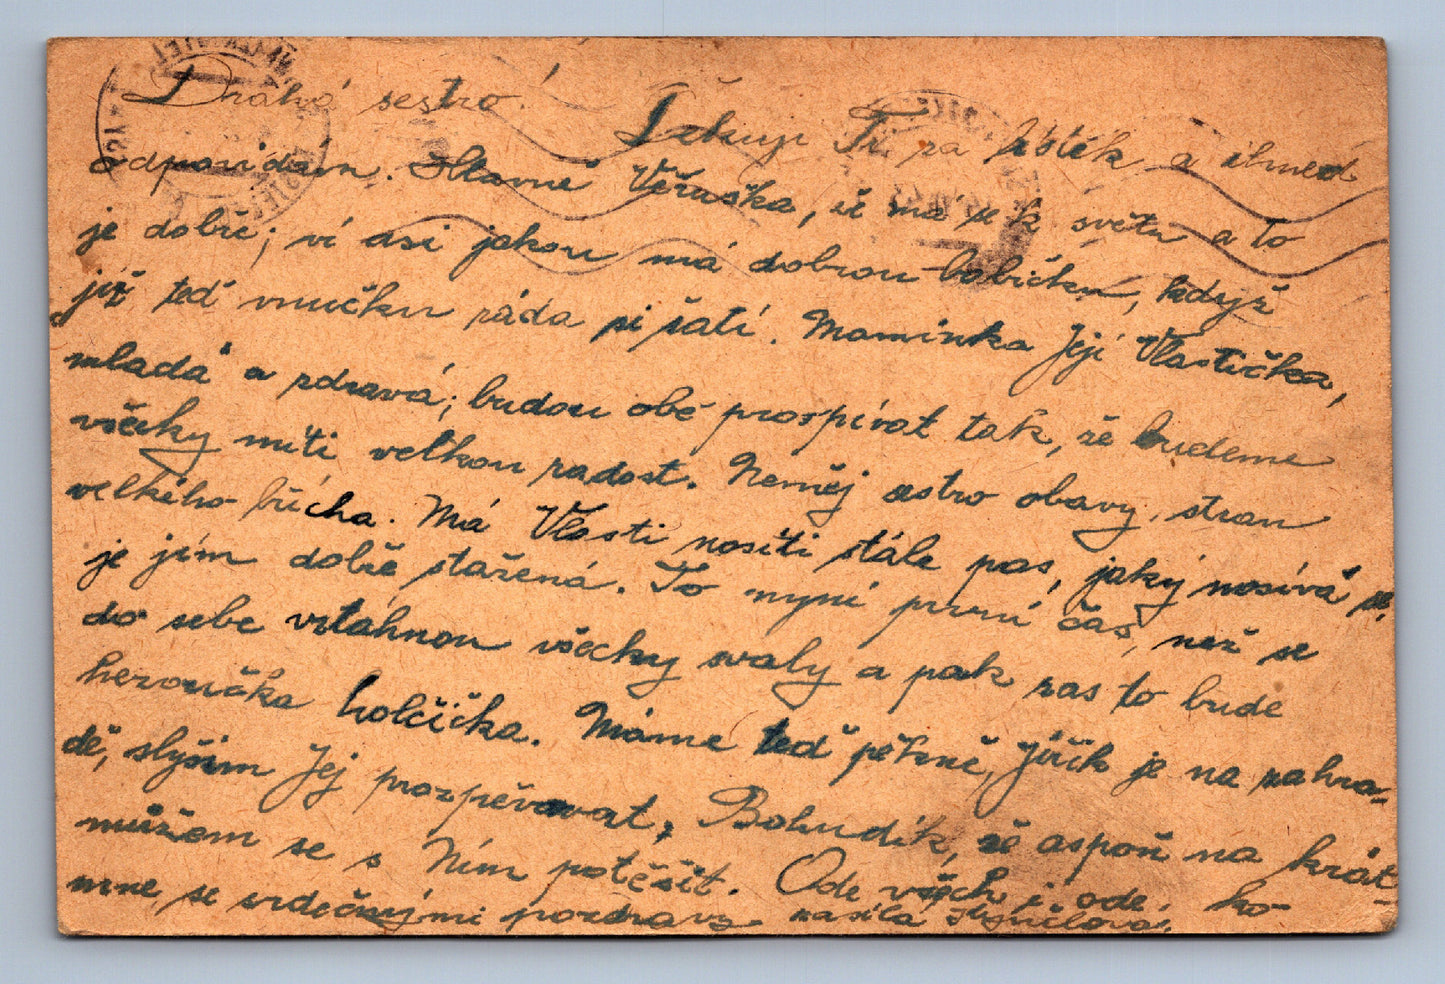 Drahá sestro!
Děkuji Ti za lístek a ihned
odpovídám. Hlavně Věruška, že má se k světu a to
je dobře; ví asi jakou má dobrou babičku, když
již teď vnučku ráda pišatí. Maminka Její Vlastička,
mladá a zdravá; budou obě prospívat tak, že budeme
všecky míti velkou radost. Neměj sestro obavy, stran
velkého břícha. Má Vlasti nositi stále pas, jaký nosívá se,
je jím dobře stažená. To nyní první čas, než se
do sebe vstáhnou všecky svaly a pak zas to bude
heroučka holčička. Máme teď pěkně, Jiřík je na zahra-
dě, slyším Jej prozpěvovat, Bohudík, že aspoň na krát-
můžem se s Ním potěšit. Ode všech i ode ko-
mne, se srdečnými pozdravy zasílá